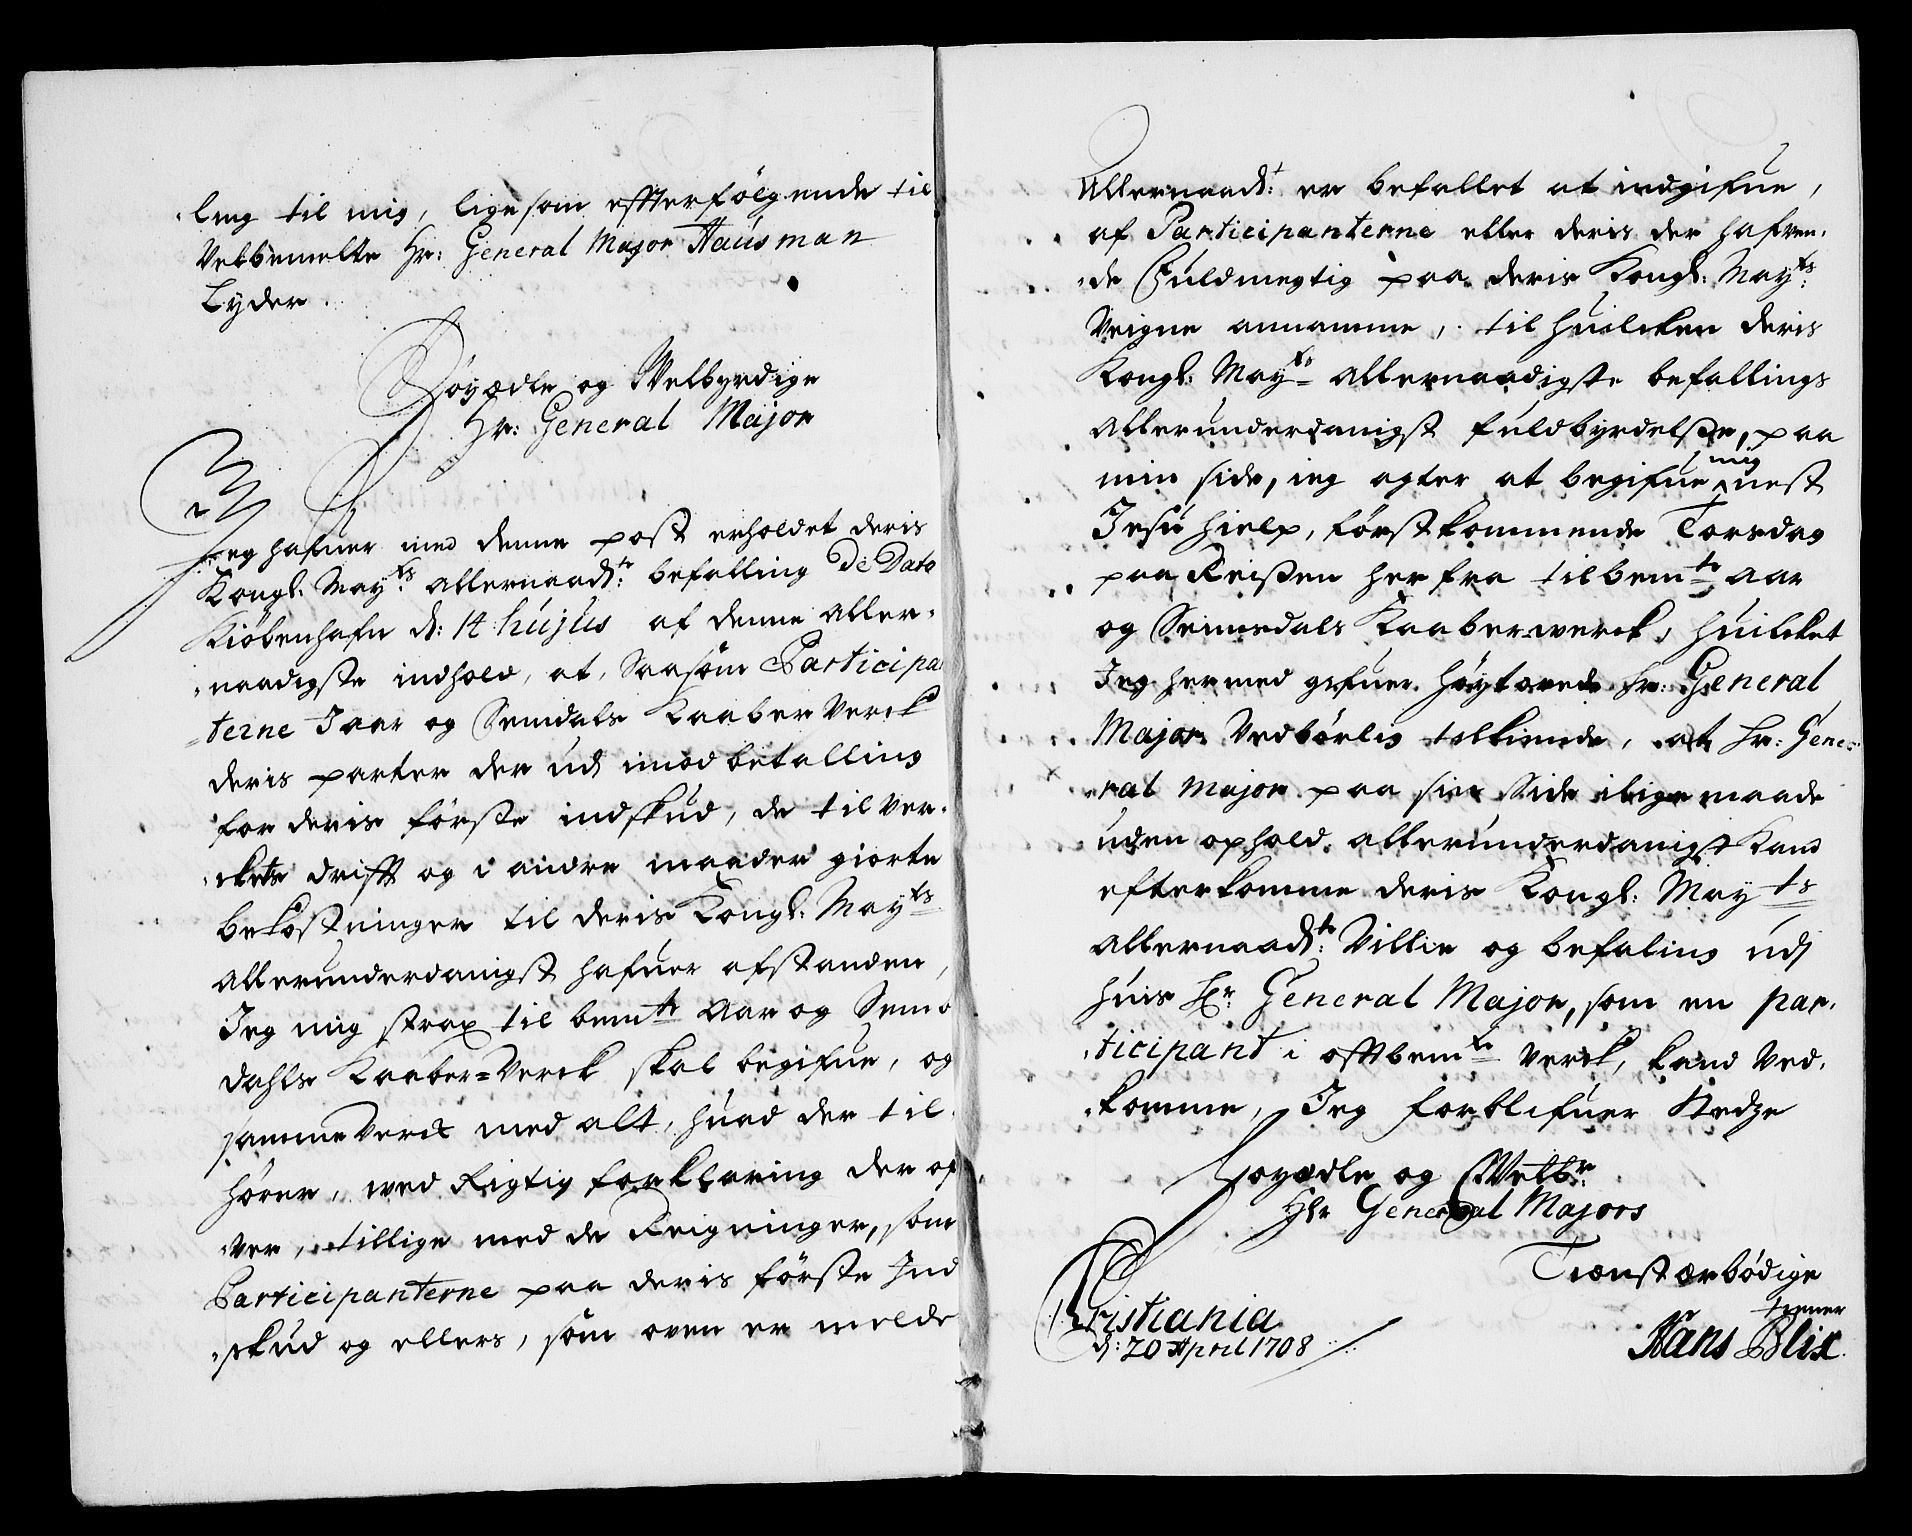 ling til mig, ligesom effterfølgende til
Velbemelte Hr: General Major Hausman
Lyder.
Høyædle og Welbyrdige
Hr: General Major
Jeg hafuer med denne post erholdet deris
Kongl: Mayts allernaadte: befalling De Dato
Kiøbenhafn d: 14 hujus af denne aller-
naadigste indhold, at, Saasom Participan
terne I aar og Semdals Kaaber Verck
deris parter der ud imod betalling
for deris første indskud, de til Ver-
ckets drifft og i andre maader giorte
bekostninger til deris Kongl: Mayts
allerunderdanigst hafuer afstanden,
Jeg mig strax til bemte Aar og Sem-
dahls Kaaber-Verck skal begifue, og
samme Verck med alt, huad der til-
hører, wed Rigtig forklaring der of-
ver, tillige med de Reigninger, som
Participanterne paa deris første Ind-
skud og ellers, som oven er melde
Allernaadt: er befallet at indgifue,
af Participanterne eller deris der hafven-
de Fuldmegtig paa deris Kongl: Mayts:
Veigne annamme, til huilcken deris
Kongl: Mayts allernaadigste befallings
allerunderdanigst fuldbyrdelsse, paa
min side, ieg agter at begifue mig nest
Jesu hielp, førstkommende Torsdag
paa Reissen her fra til bemte Aar
og Semedals Kaaberwerck, huilcket
Jeg hermed gifuer høytærede Hr: General
Major Vedbørlig tilkiende, at Hr: Gene-
ral Major paa sin Side ilige maade
uden ophold allerunderdanigst kand
efterkomme deris Kongl: Mayts
allernaadte: Villie og befaling udj
huis Hr: General Major, som en par-
ticipant i offtbemte Verck, kand Ved-
komme, Jeg forblifuer Stedze
Høyædle og Welbr:
Hr General Majors
Tienstærbødige
tienner
Christiania
d: 20 April 1708
Hans Blix.